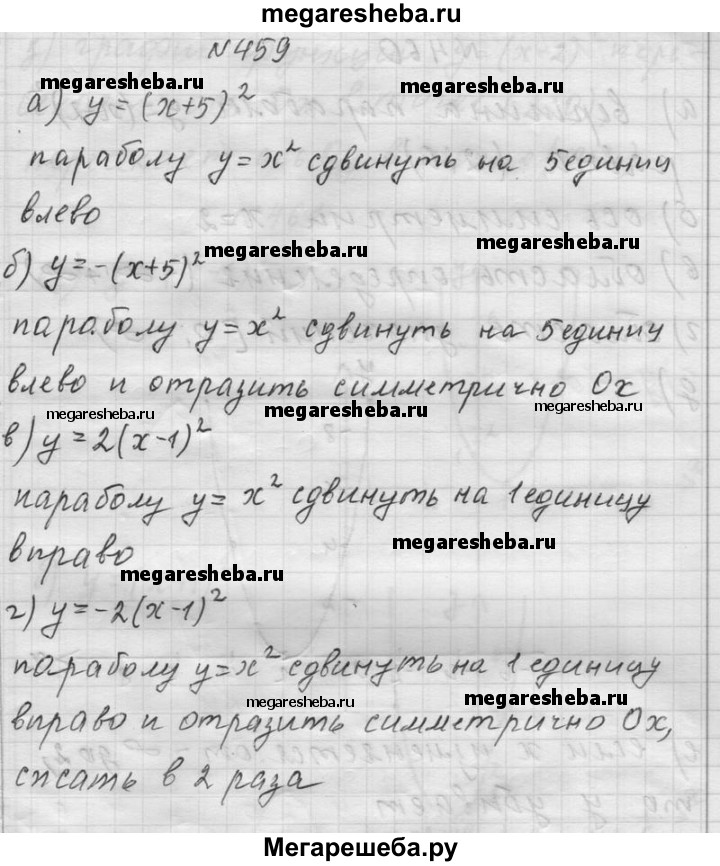 megaresheba.ru
№459
megaresheba.ru megaresheba.ru
а) y=(x+5)²
параболу y=x² сдвинуть на 5единиц
влево
megaresheba.ru megaresheba.ru
б) y=-(x+5)²
параболу y=x² сдвинуть на 5единиц
влево и отразить симметрично Ох
megaresheba.ru megaresheba.ru megaresheba.ru
в) y=2(x-1)²
параболу y=x² сдвинуть на 1единицу
вправо
megaresheba.ru
megaresheba.ru
г) y=-2(x-1)²
параболу y=x² сдвинуть на 1 единицу
megaresheba.ru megaresheba.ru
вправо и отразить симметрично Ох,
сжать в 2 раза
Мегарешеба.ру